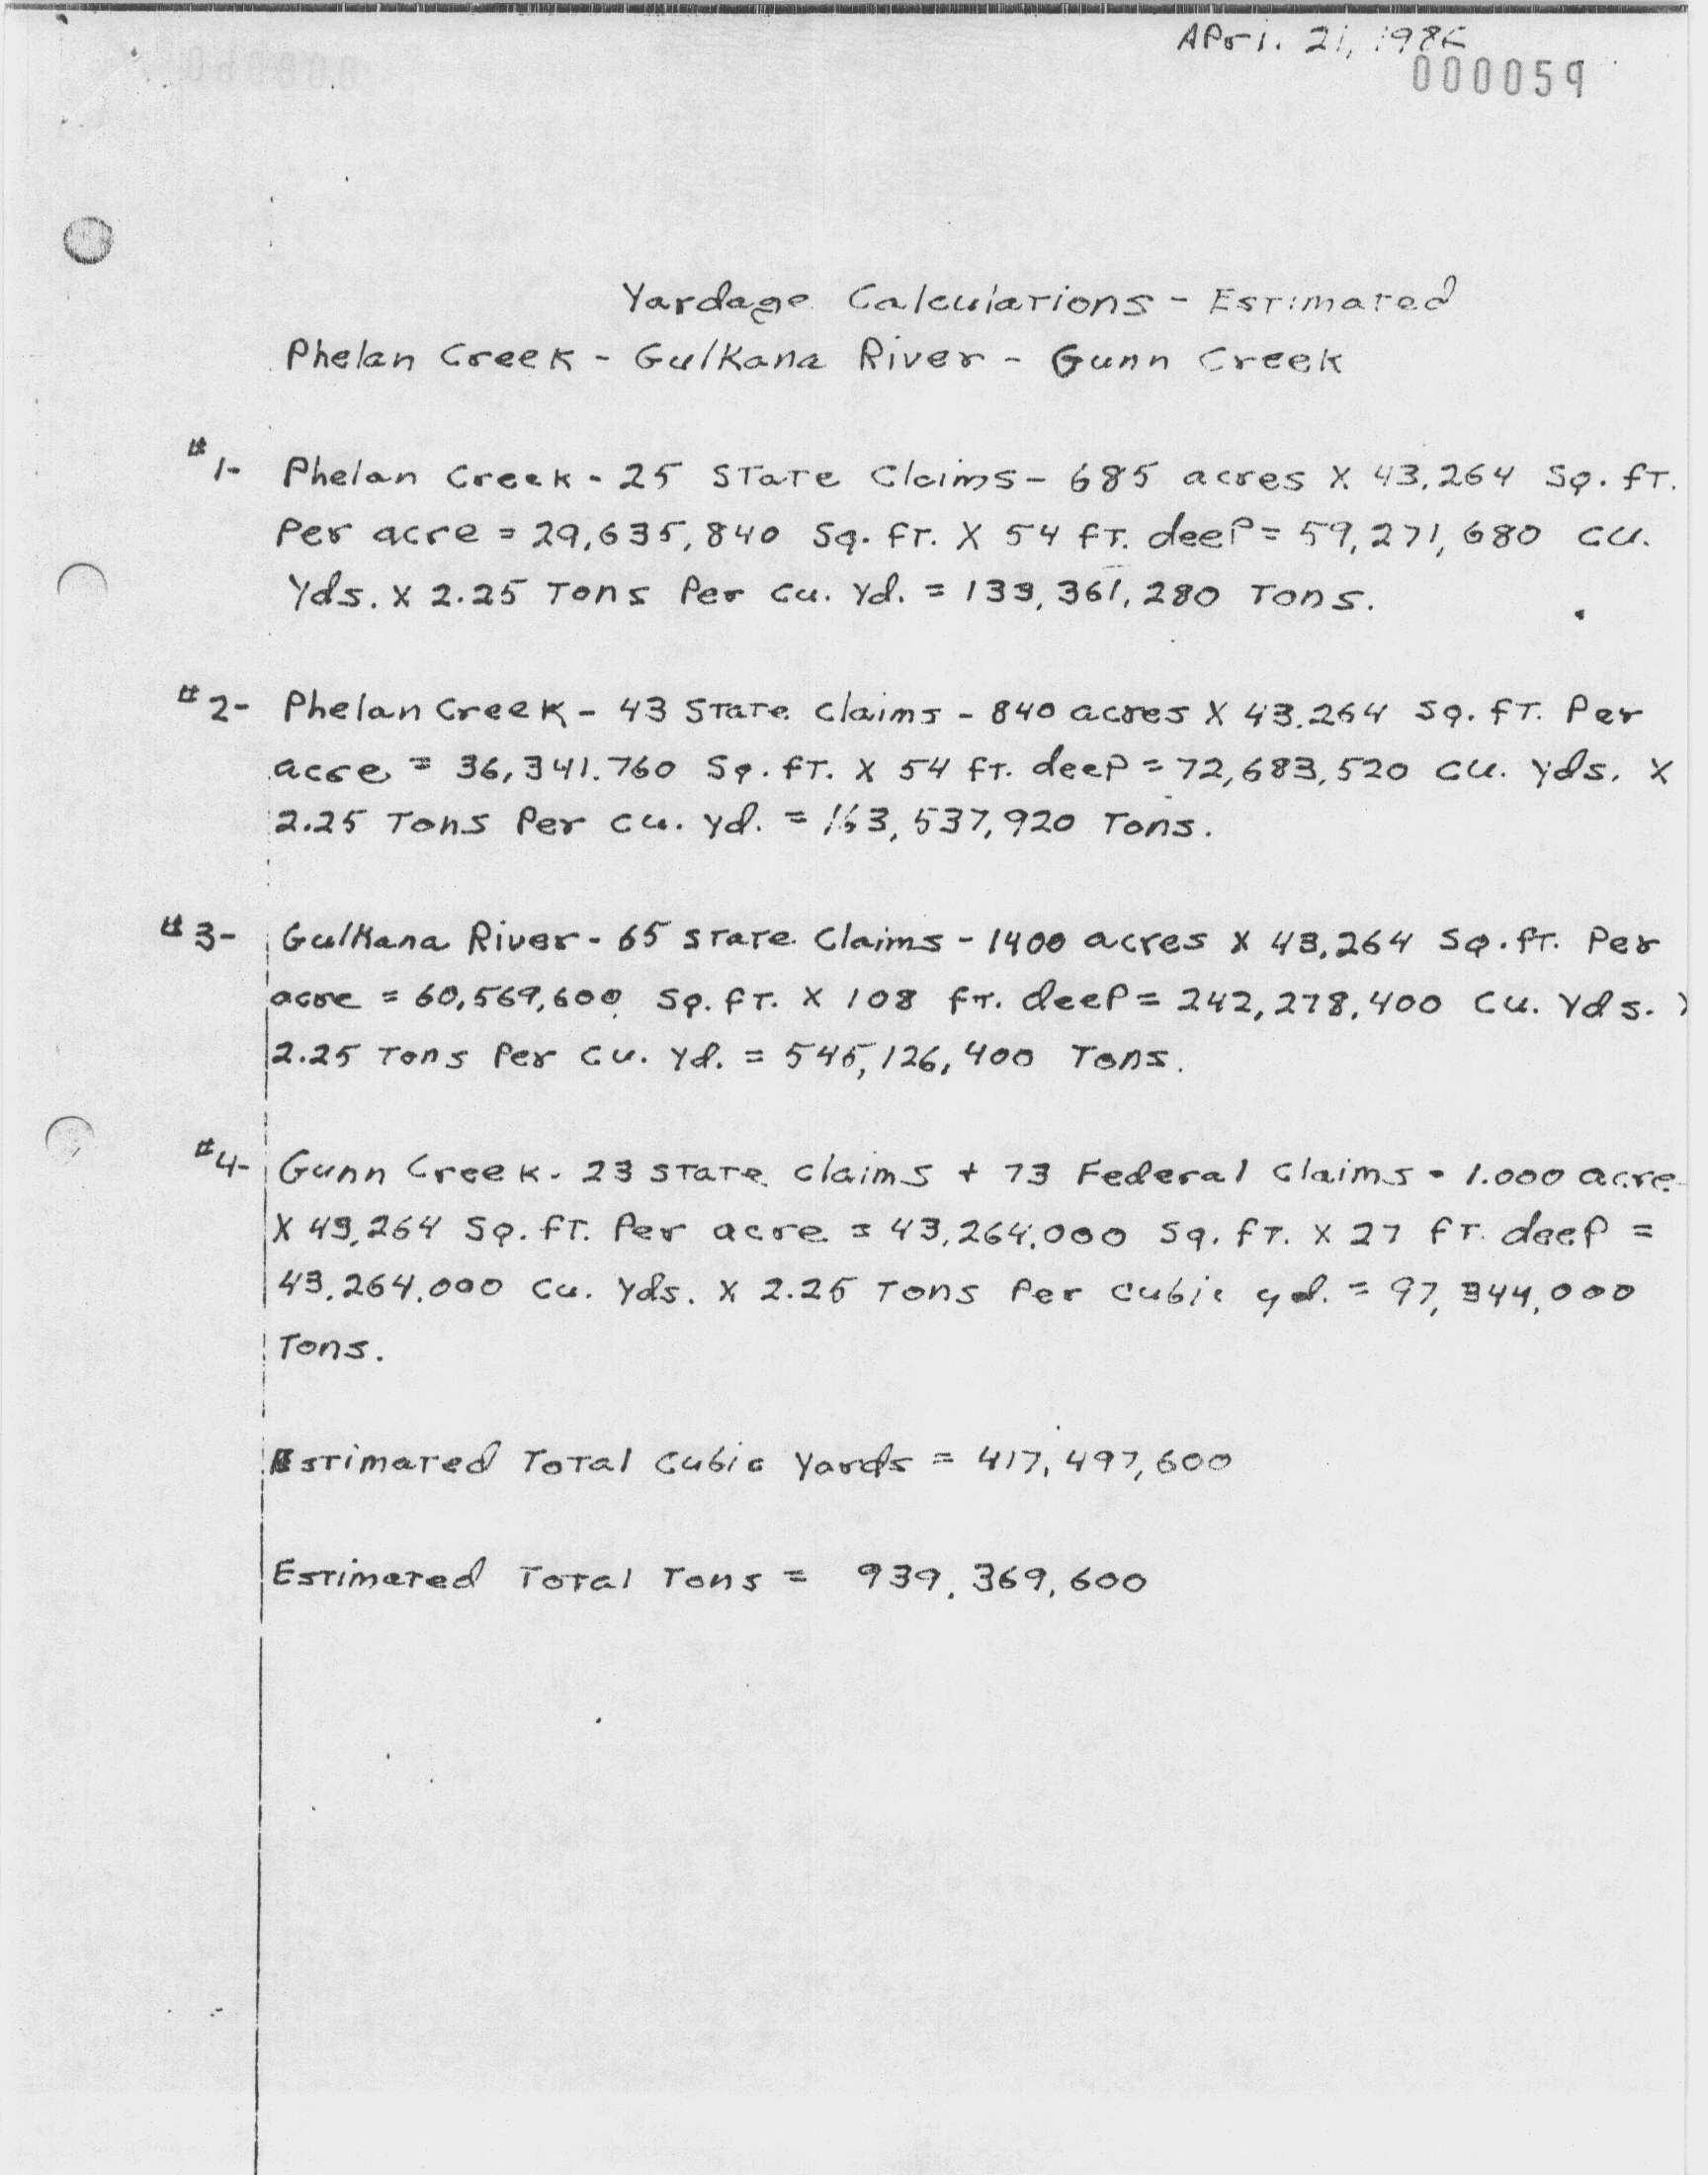 April 21, 1986
000059
Yardage Calculations - Estimated
Phelan Creek - Gulkana River - Gunn Creek
#1- Phelan Creek - 25 State Claims - 685 acres X 43,264 Sq. ft.
Per acre = 29,635,840 Sq. ft. X 54 ft. deep = 59,271,680 cu.
Yds. X 2.25 Tons Per cu. Yd. = 133,361,280 Tons.
#2- Phelan Creek - 43 State Claims - 840 acres X 43.264 Sq. ft. Per
acre = 36,341.760 Sq. ft. X 54 ft. deep = 72,683,520 cu. yds. X
2.25 Tons Per cu. yd. = 163,537,920 Tons.
#3- Gulkana River - 65 State Claims - 1400 acres X 43,264 Sq. ft. Per
acre = 60,569,600 Sq. ft. X 108 ft. deep = 242,278,400 cu. Yds.
2.25 Tons Per cu. Yd. = 545,126,400 Tons.
#4- Gunn Creek - 23 State Claims + 73 Federal Claims - 1.000 acre
X 43,264 Sq. ft. Per acre = 43,264,000 Sq. ft. X 27 ft. deep =
43,264,000 cu. Yds. X 2.25 Tons Per cubic yd. = 97,344,000
Tons.
Estimated Total Cubic Yards = 417,497,600
Estimated Total Tons = 939,369,600